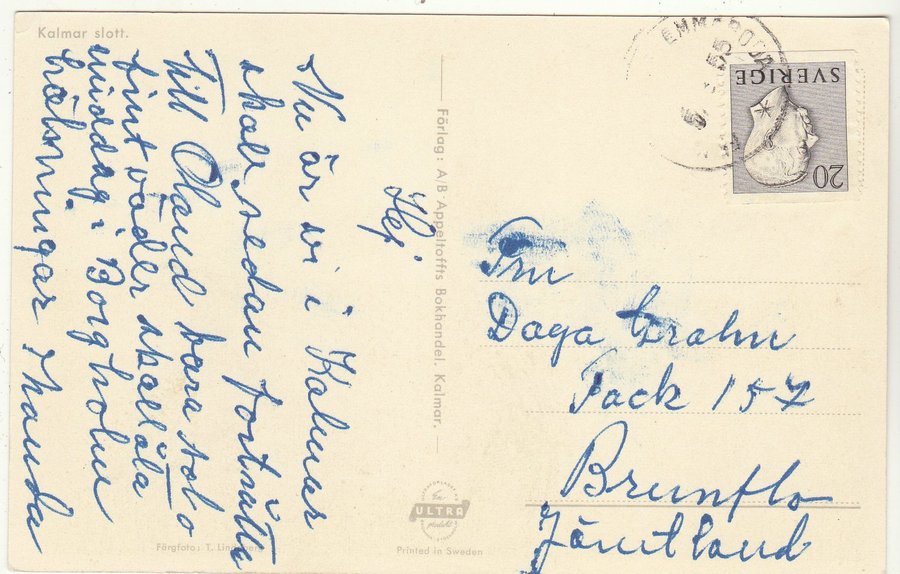 Kalmar slott.
Hej
Nu är vi i Kalmar
skall sedan fortsätta
till Öland bara sol o
fint väder skall äta
middag i Borgholm
hälsningar Manda
Förlag: A/B Appeltoffts Bokhandel. Kalmar.
EMMABODA
5. 55
SVERIGE
20
Fru
Daga Grahn
Fack 157
Brunflo
Jämtland
En
ULTRA
produkt
Färgfoto: T. Lindberg
Printed in Sweden